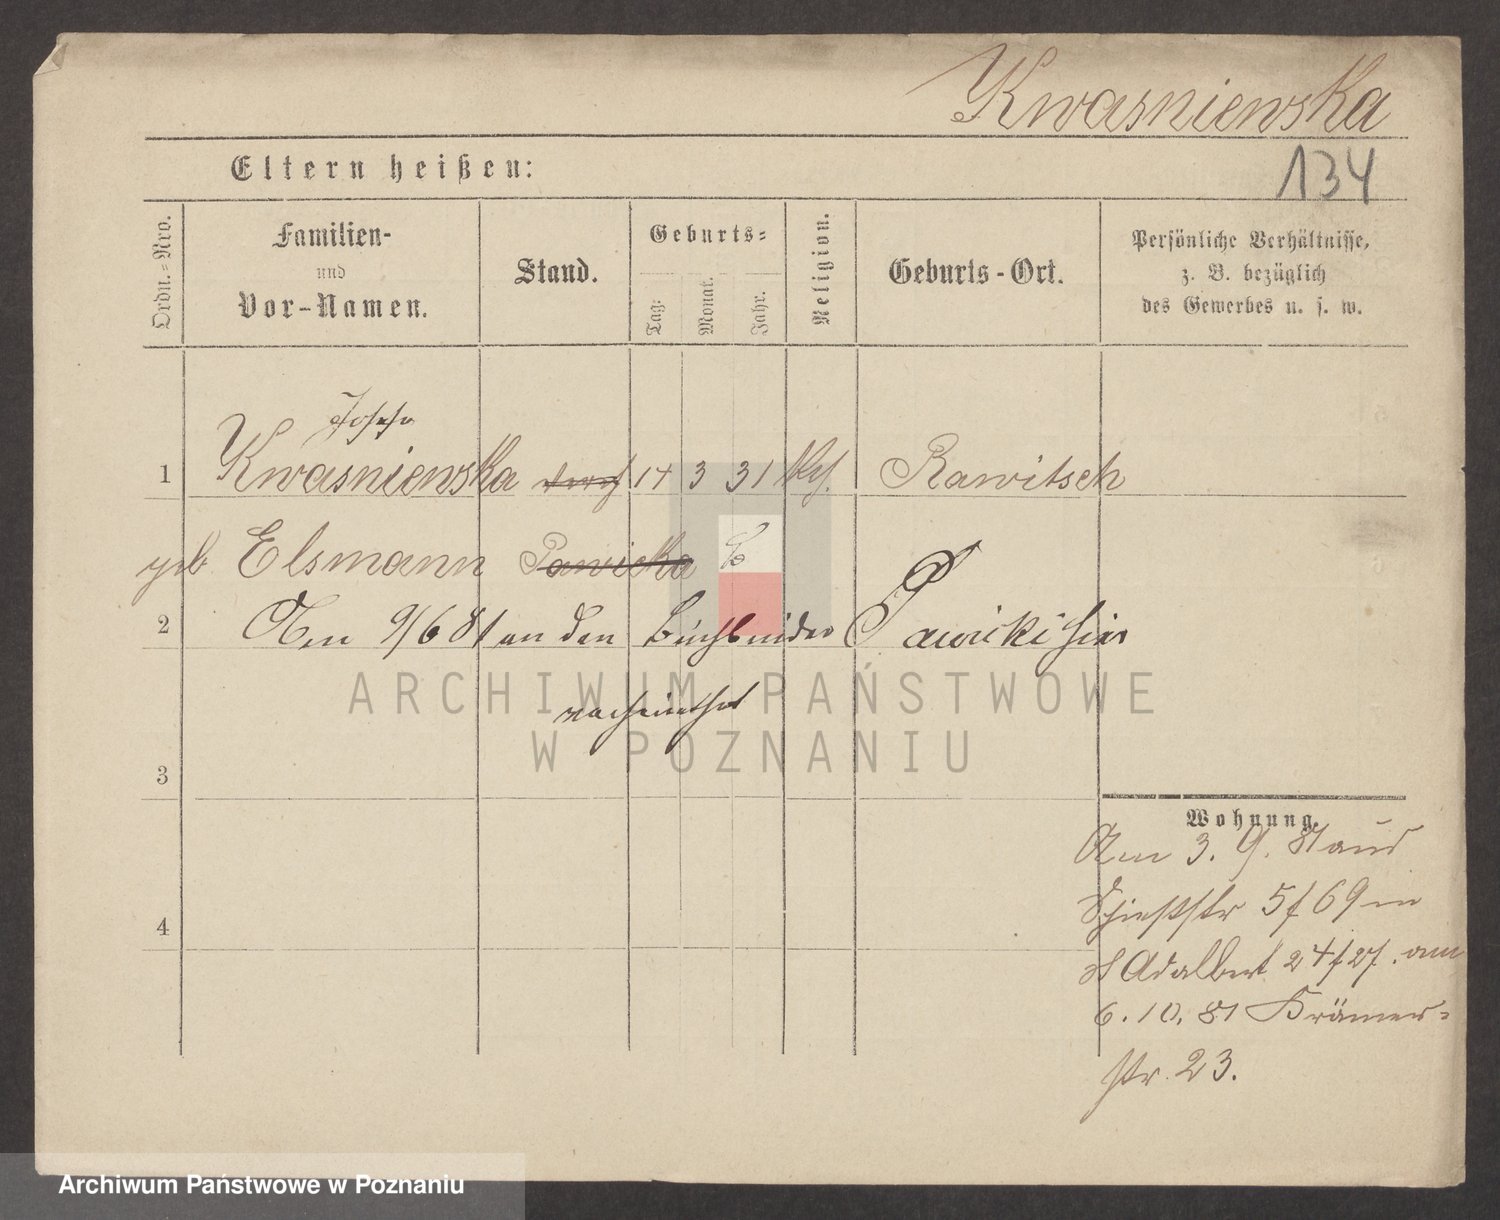 Kwasniewska
134
Eltern heißen:
Ordn.=Nro.
Familien-
und
Vor-Namen.
Stand.
Geburts=
Tag:
Monat.
Jahr.
Religion.
Geburts-Ort.
Persönliche Verhältnisse,
z. B. bezüglich
des Gewerbes u. s. w.
1 Kwasniewska 14 3 31 Rawitsch
geb Elsmann Pawicka
2 Am 9/6 81 an den Buchbinder Pawicki hier
verheirathet
ARCHIWUM PAŃSTWOWE
W POZNANIU
3
Wohnung.
Am 3. 9. 81 aus
Schießstr 5 f 69 in
St Adalbert 24 f 27. am
6. 10. 81 Krämer=
str. 23.
4
Archiwum Państwowe w Poznaniu